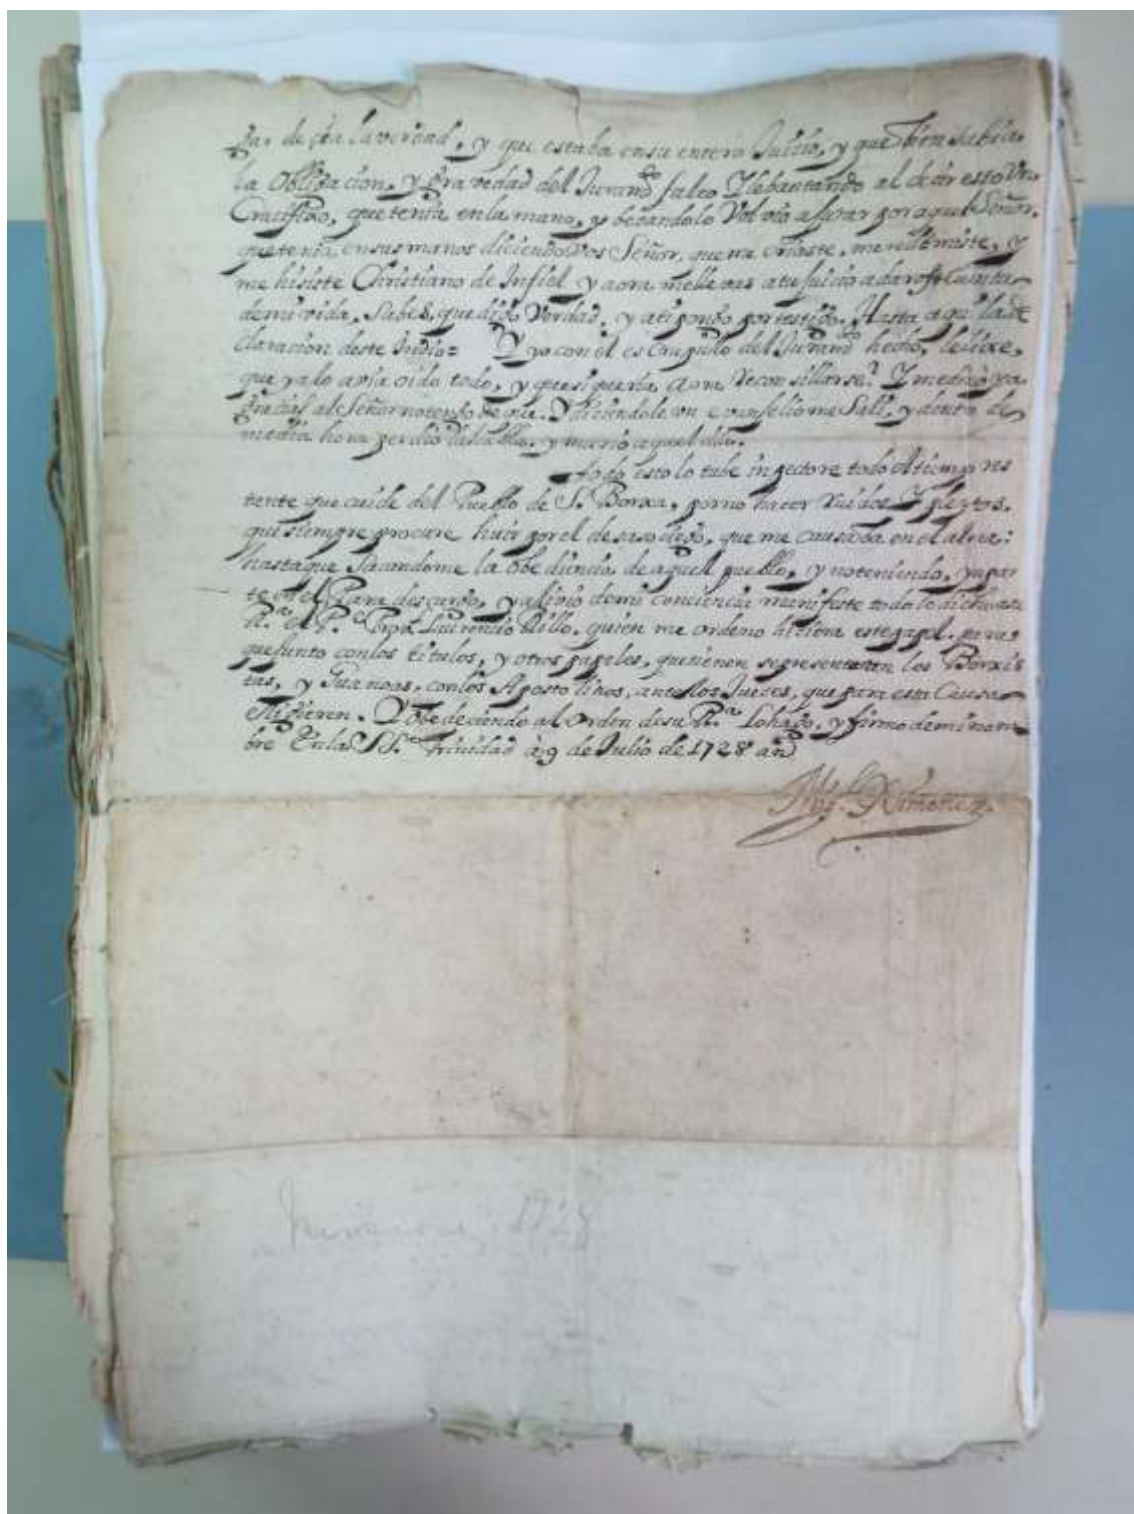 de la verdad, y que estaba en su entero Juicio, y que bien sabia
la Obligacion, y gravedad del Juramto falso Y lebantando al decir esso Un
Crucifixo, que tenia en la mano, y besandolo Volvio a jurar por aquel Señor,
que tenia en sus manos diciendo Vos Señor, que me criaste, me redimiste, y
me hisiste Christiano de Infiel y aora me llevas a tu juicio a daros Cuenta
de mi vida, Sabes, que digo Verdad, y a ti pongo por testigo. Hasta aqui la de
claracion deste Indio= Y yo con el escrupulo del Juramto hecho, le dixe,
que ya lo avia oido todo, y que si queria aora reconsiliarse? Y me dixo ya
gracias al Señor no tengo de que. Y diciendole un evanjelio me Sali, y dentro de
media hora perdio la habla, y murio aquel dia.
Todo esto lo tube in pectore todo el tiempo
que cuide del Pueblo de S. Borxa, por no hacer ruidos Y pleytos,
que siempre procure huir por el desasosiego, que me causaba en el alma:
hasta que Sacandome la Obediencia de aquell pueblo, y no teniendo, ya par
te en el Para descargo, y alivio de mi conciencia manifeste todo lo dicho a su
R.ª el P. Laurencio Dillo, quien me ordeno hiziera este papel, para
que junto con los titulos, y otros papeles, que tienen se presentaran los Borxis
tas, y Guanoas, con los Apostolinos, ante los Jueses, que para esta Causa
Eligieren. Y Obedeciendo al Orden de su R.ª Lo hago, y firmo de mi nom
bre En la SS.ª Trinidad à 9 de Julio de 1728 añ
Mig.l Ximenez.
1728